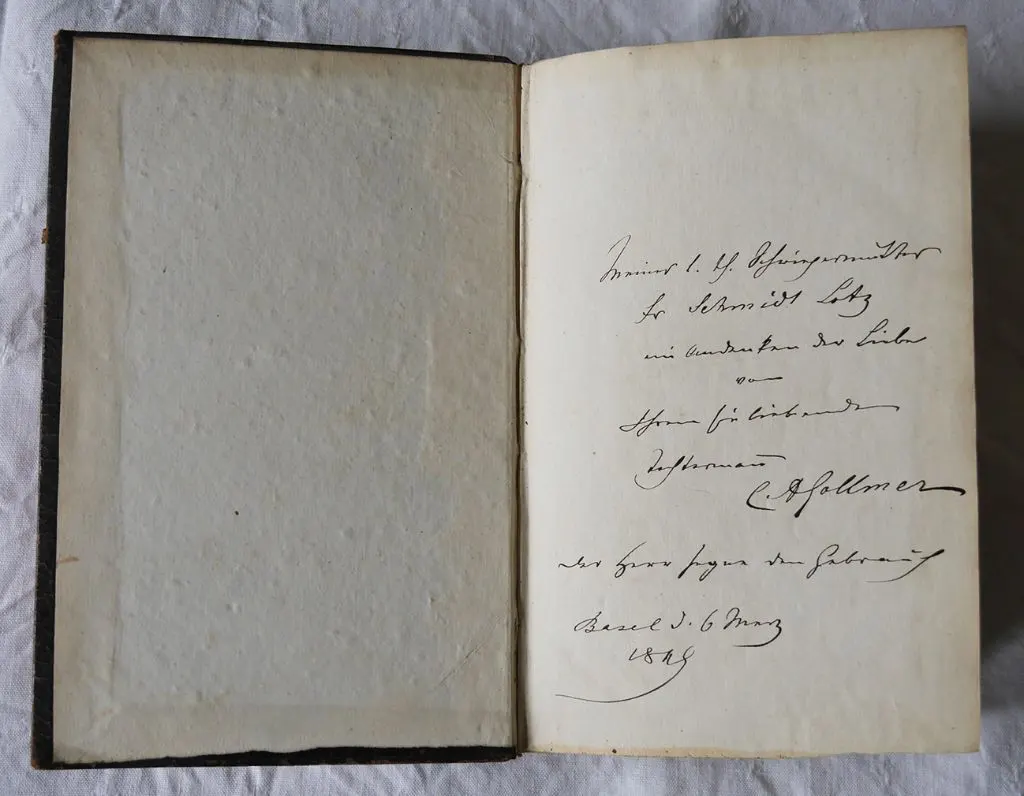 Meiner l. th. Schwiegermutter
Fr Schmidt Lotz
ein Andenken der Liebe
von
Ihrem Sie liebenden
Tochtermann
C. A.
der Herr segne den Gebrauch
Basel d. 6 Merz